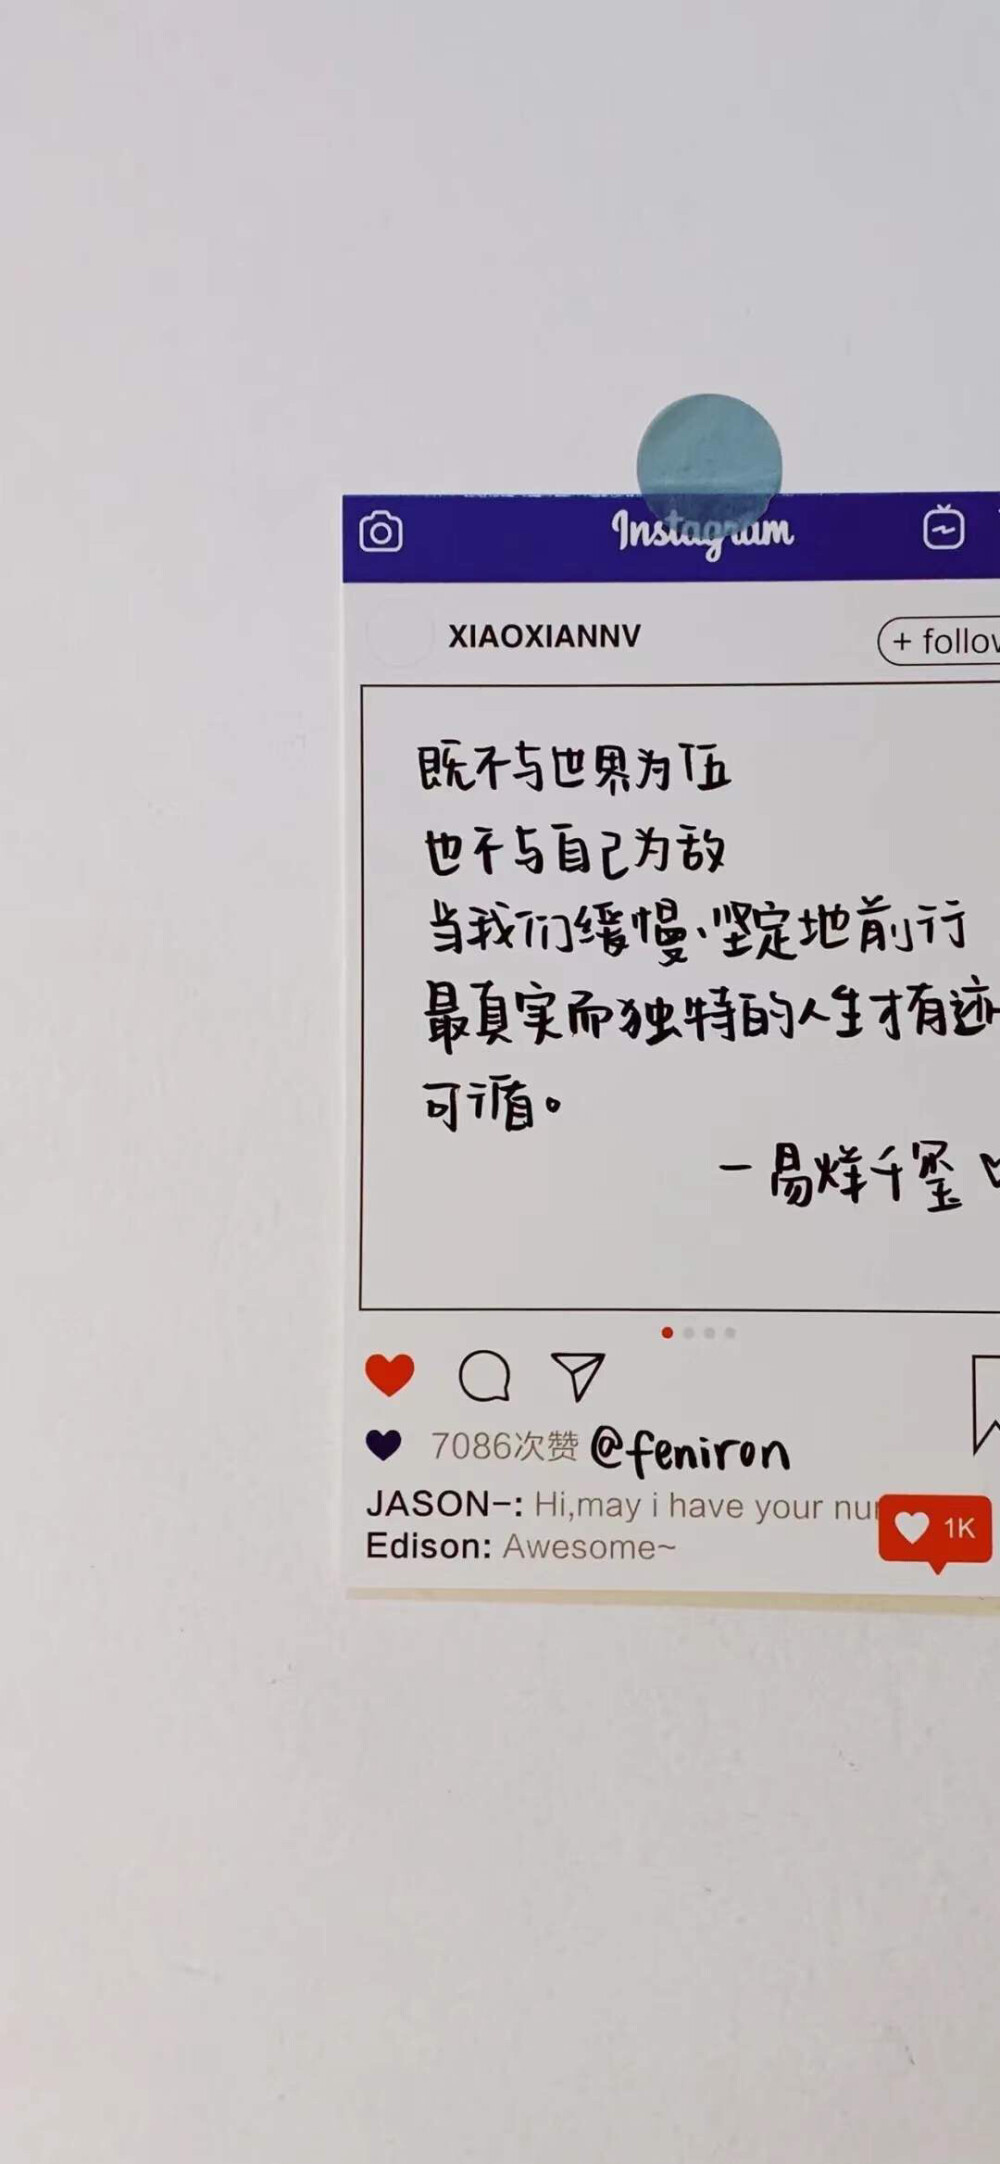 Instagram
XIAOXIANNV
+ follow
既不与世界为伍
也不与自己为敌
当我们缓慢、坚定地前行
最真实而独特的人生才有迹
可循。
—易烊千玺
7086次赞 @feniron
JASON-: Hi,may i have your
1K
Edison: Awesome~